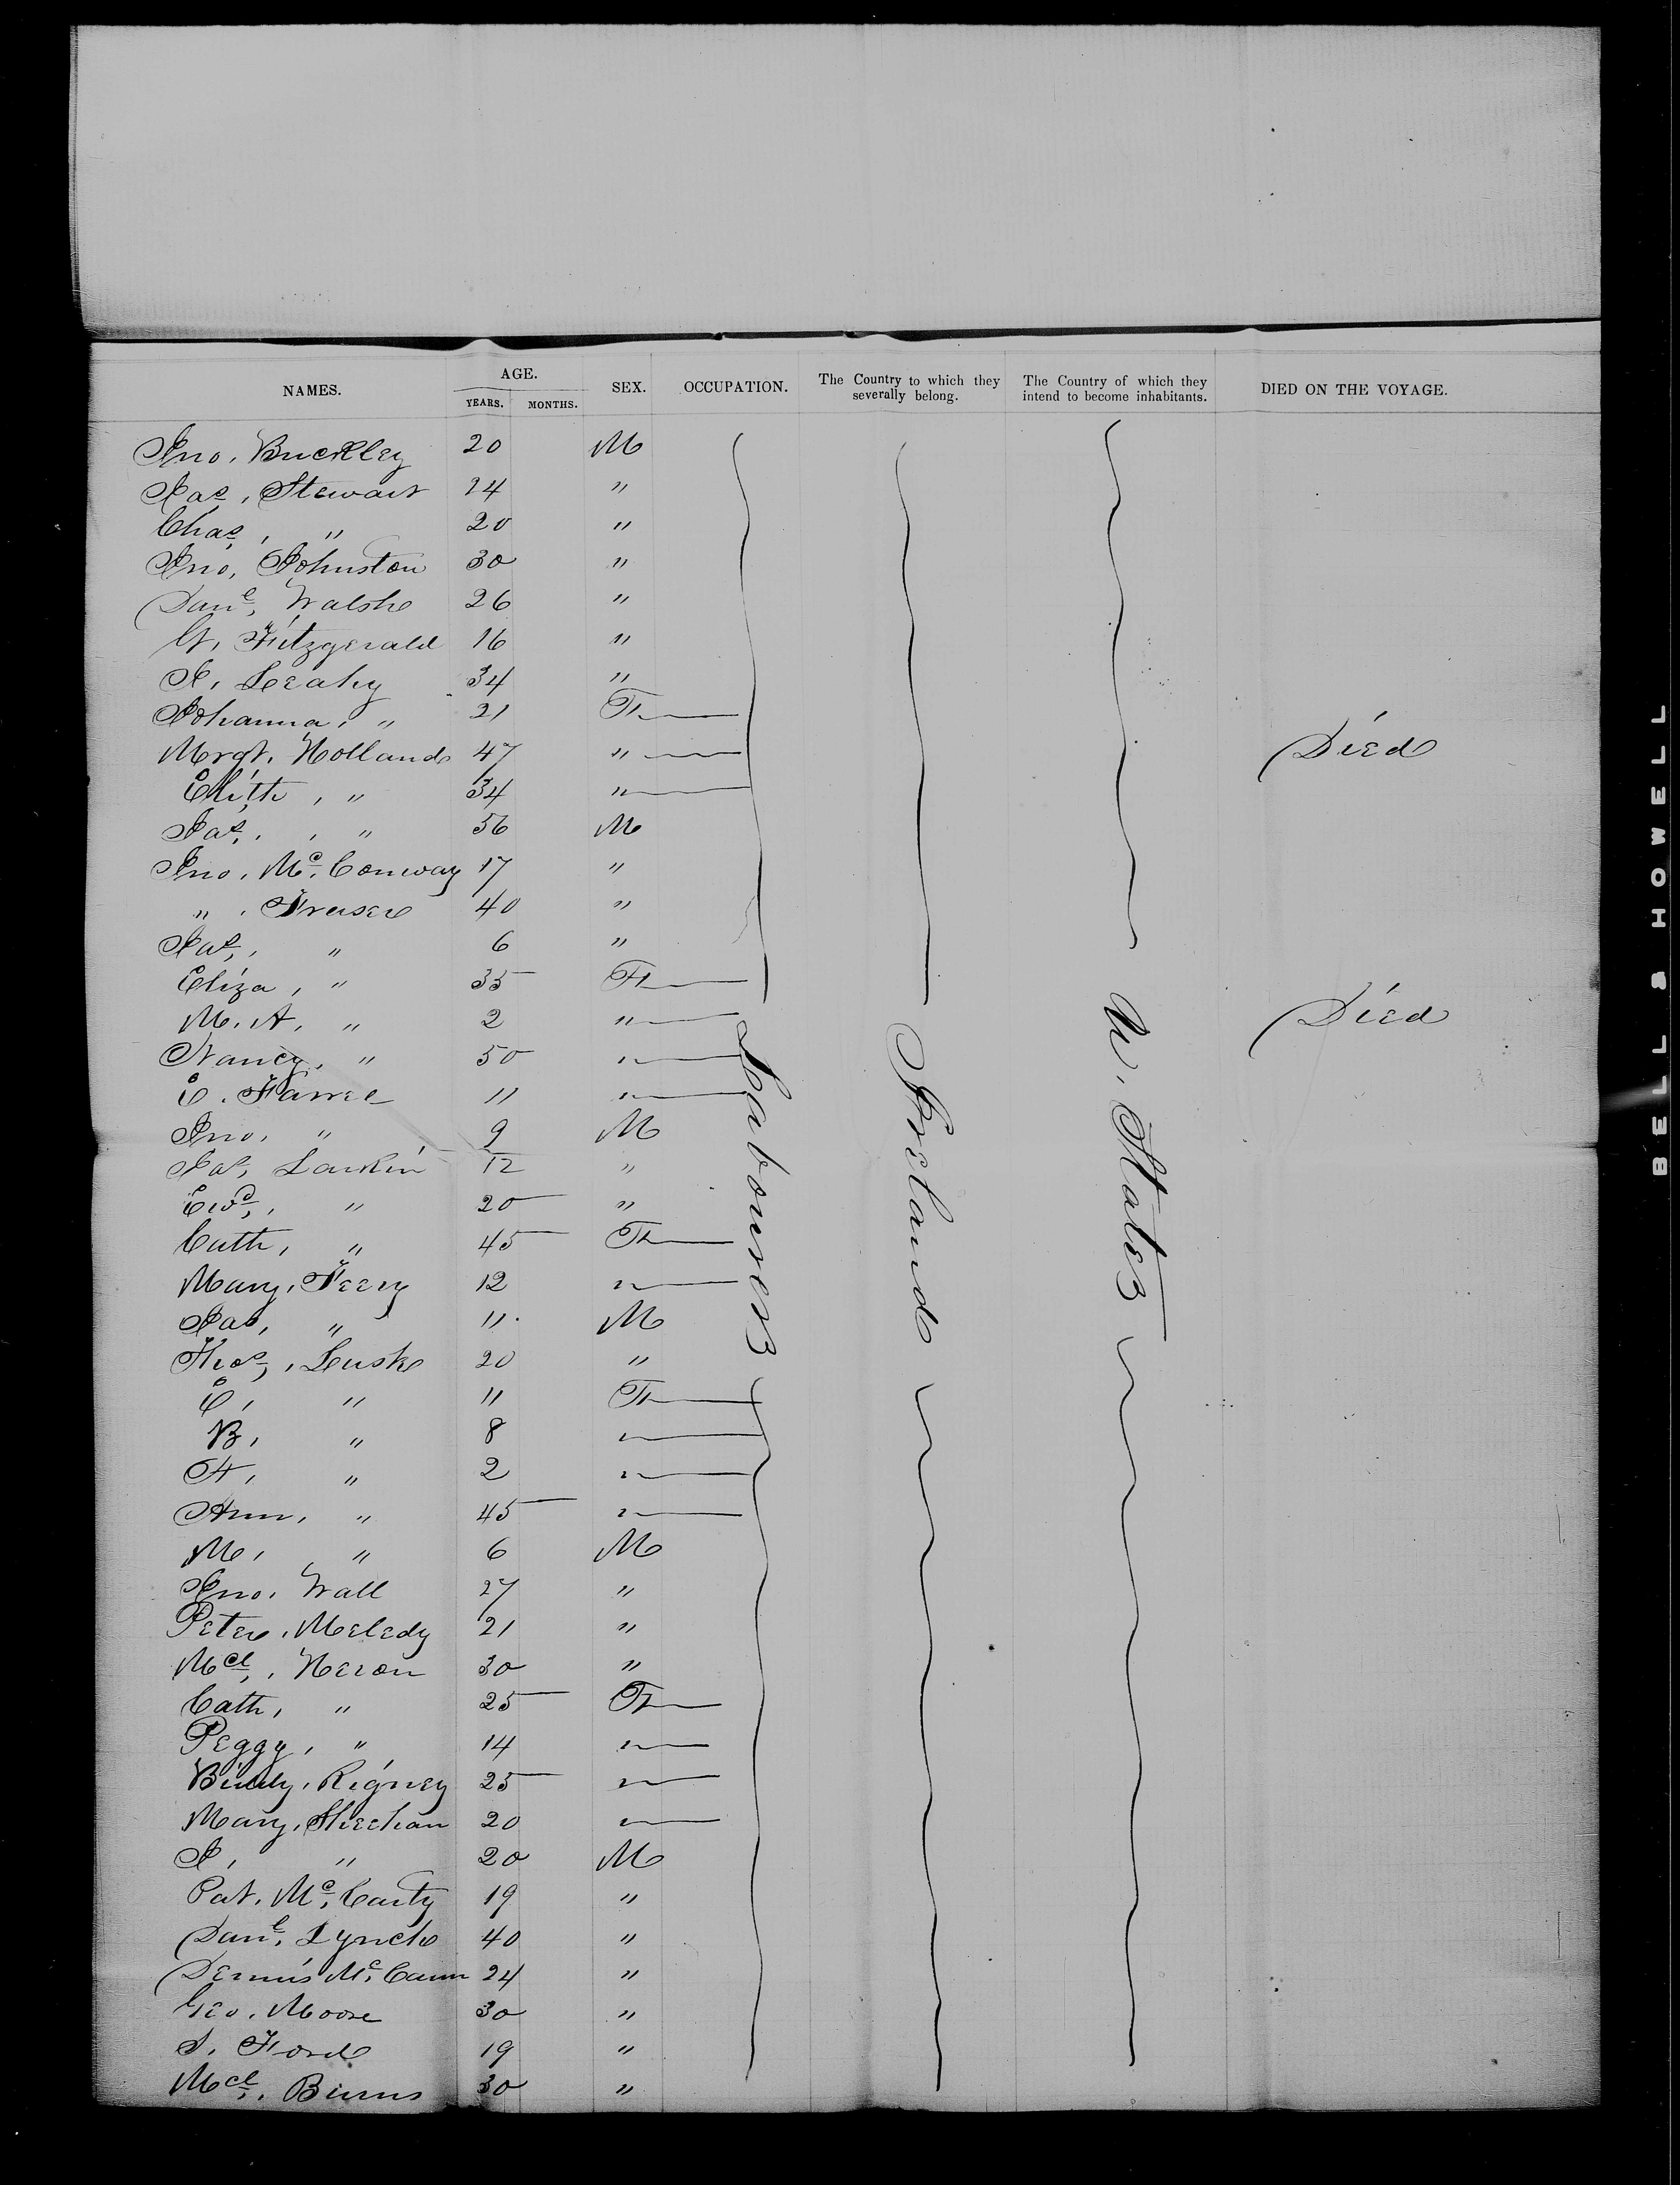 NAMES. AGE. YEARS. MONTHS. SEX. OCCUPATION. The Country to which they severally belong. The Country of which they intend to become inhabitants. DIED ON THE VOYAGE.
Jno. Buckley 20 M
Jas, Stewart 24 "
Chas, " 20 "
Jno, Johnston 30 "
Danl, Walsh 26 "
G, Fitzgerald 16 "
J, Leahy 34 "
Johanna, " 21 F
Mrgt. Holland 47 " Died
Elizth, " 34 "
Jas, " 56 M
Jno. Mc. Conway 17 "
" . Fraser 40 "
Jas, " 6 "
Eliza, " 35 F
M. A, " 2 " Died
Nancy, " 50 "
E. 11 "
Jno, " 9 M
Jas, Larkin 12 "
Ewd, " 20 "
Cath, " 45 F
Mary, Feery 12 "
Jas, " 11 M
Thos, Lusk 20 "
E, " 11 F
B, " 8 "
H, " 2 "
Ann, " 45 "
M, " 6 M
Jno. Wall 27 "
Peter, Meledy 21 "
Mcl, Heron 30 "
Cath, " 25 F
Peggy, " 14 "
Biddy, Rigney 25 "
Mary, Sheehan 20 "
J, " 20 M
Pat. Mc. Carty 19 "
Danl. Lynch 40 "
Dennis Mc. Cann 24 "
Geo. Moore 30 "
S. Ford 19 "
Mcl, Burns 30 "
Labourers
Ireland
U. States
BELL & HOWELL